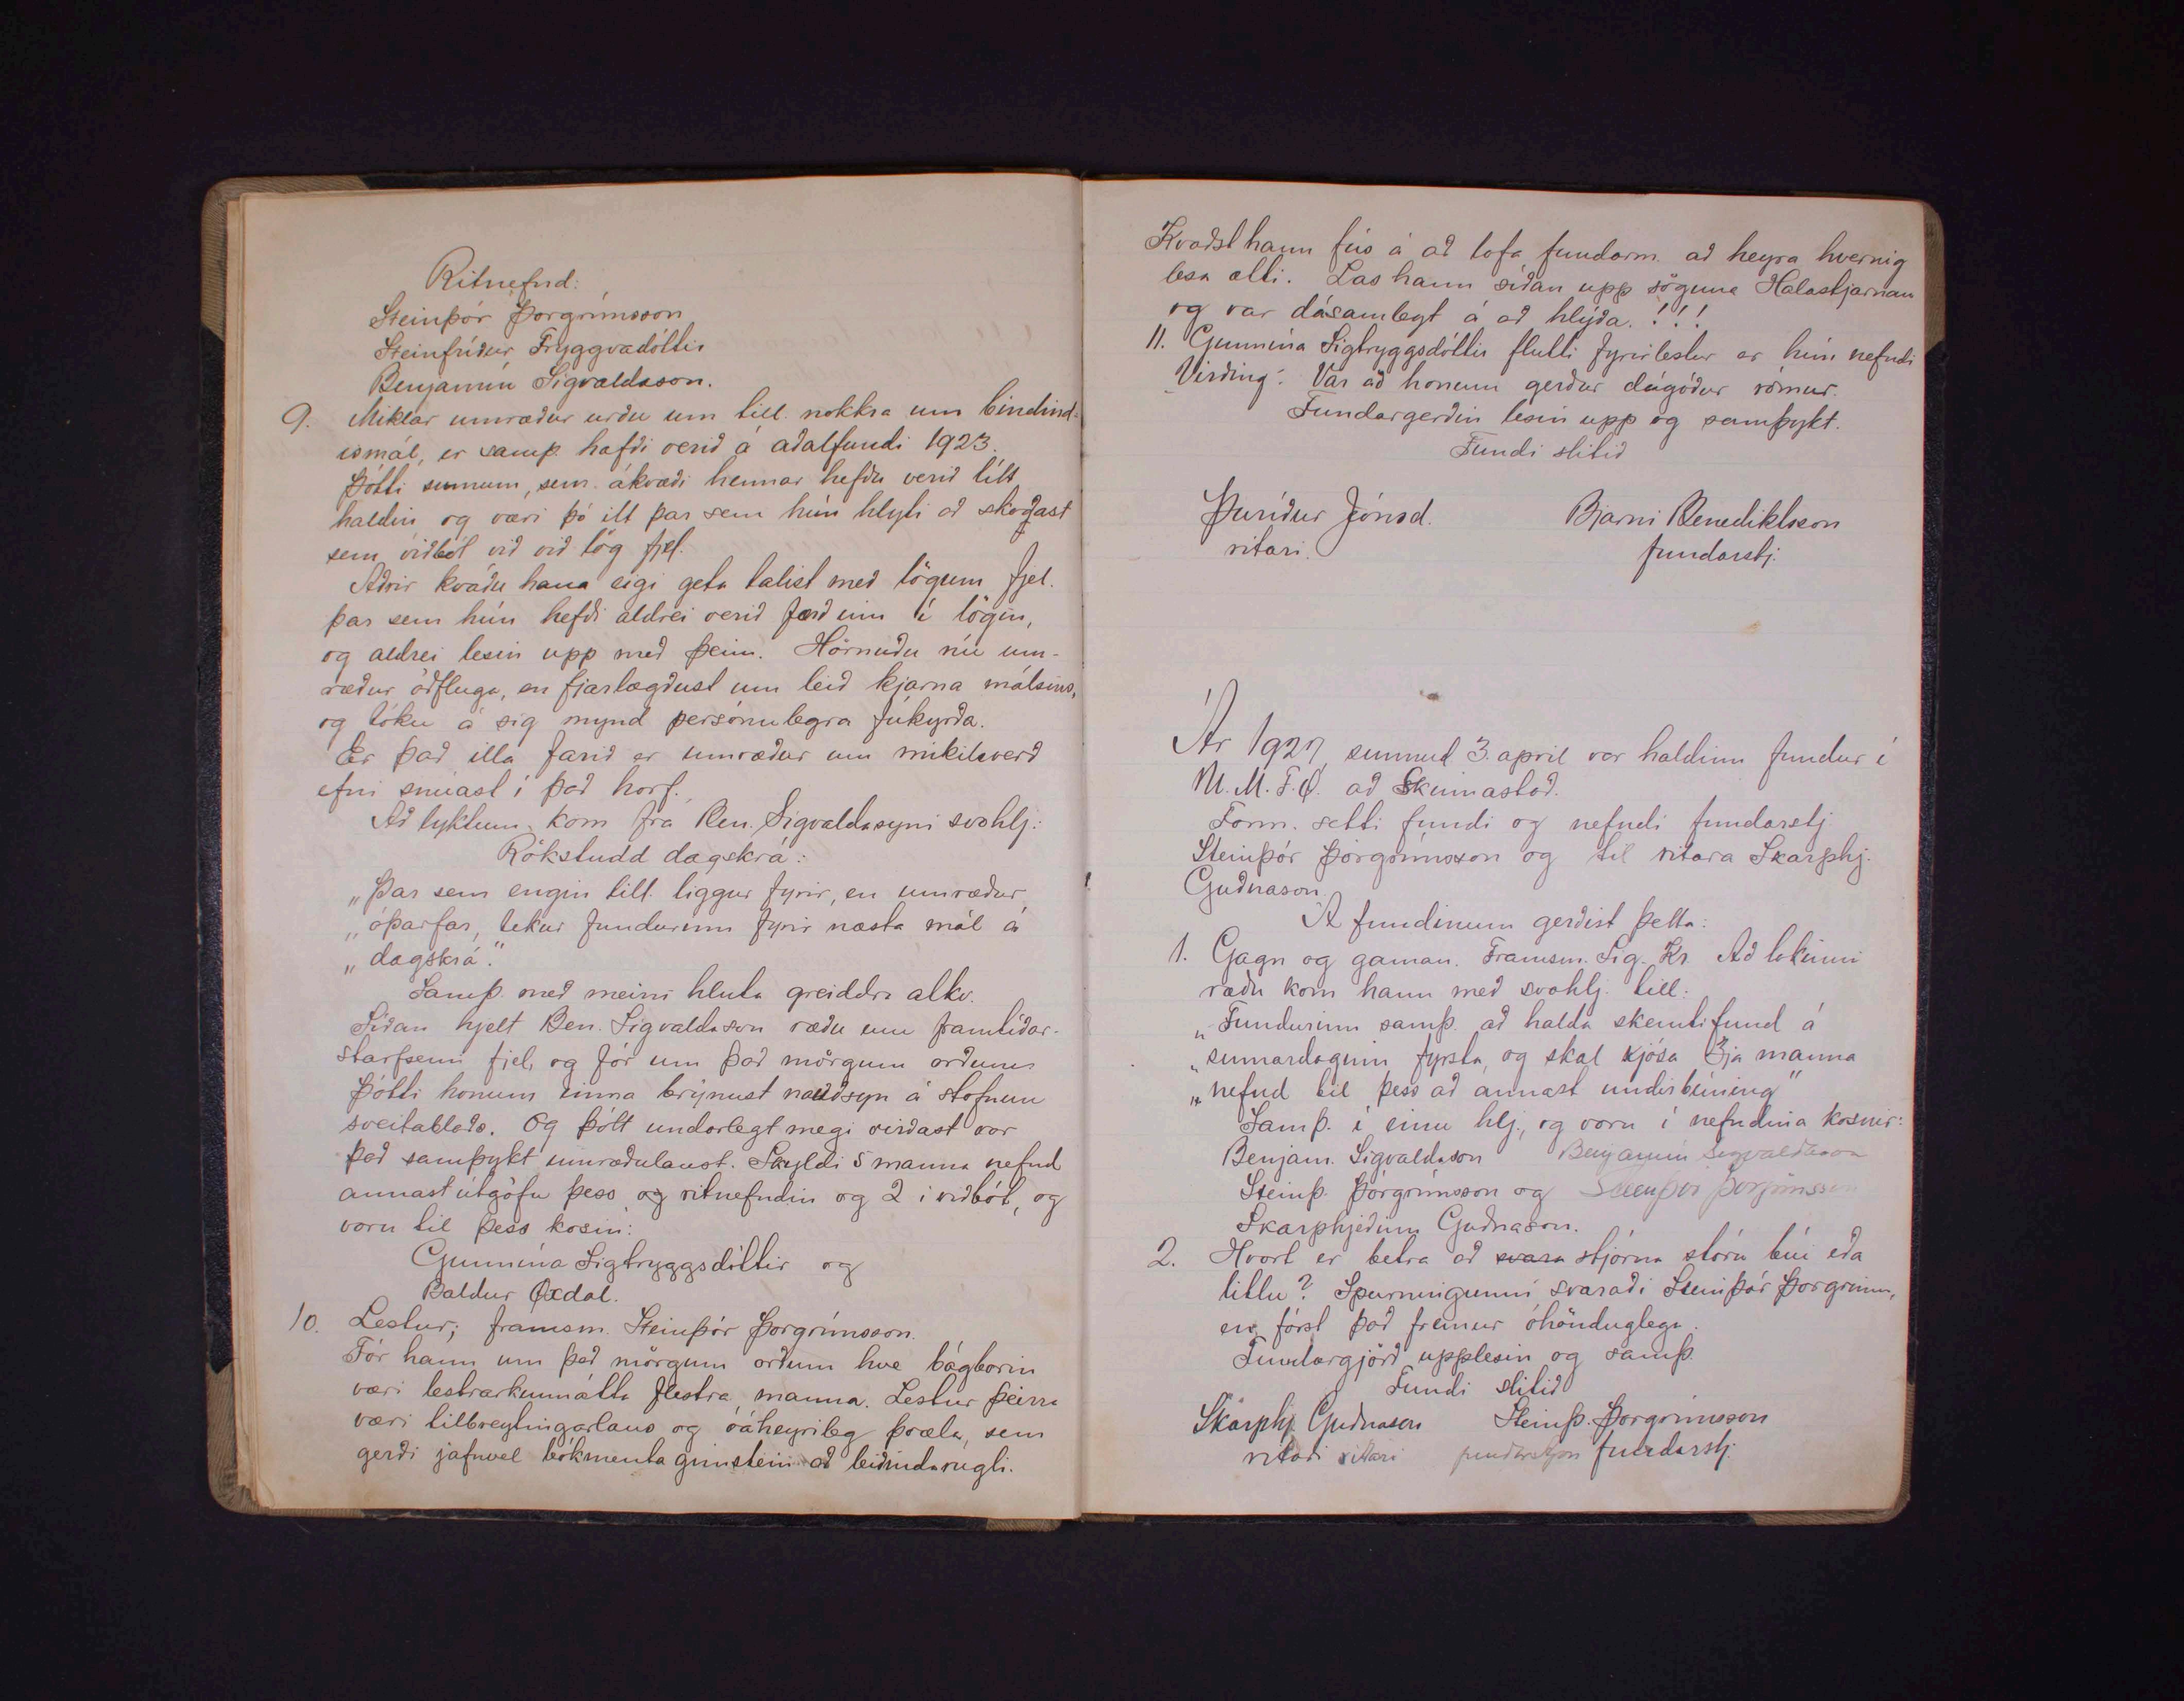 Ritnefnd:
Steinþór Þorgrímsson
Steinfríður Tryggvadóttir
Benjamín Sigvaldsson.
9. Miklar umræður urðu um till. nokkra um bindind-
ismál, er samþ. hafði verið á aðalfundi 1923.
Þótti sumum, sem ákvæði hennar hefðu verið lítt
haldin og væri þó illt þar sem hún hlyti að skoðast
sem viðbót við við lög fjel.
Aðrir kváðu hana eigi geta talist með lögum fjel.
þar sem hún hefði aldrei verið færð inn í lögin,
og aldrei lesin upp með þeim. Hörnuðu nú um-
ræður óðfluga, en fjarlægðust um leið kjarna málsins,
og tóku á sig mynd persónulegra fúkyrða.
Er það illa farið er umræður um mikilsverð
efni snúast í það horf.
Að lyktum kom frá Ben. Sigvaldasyni svohlj:
Rökstudd dagskrá:
„Þar sem engin till. liggur fyrir, en umræður
„óþarfar, tekur fundurinn fyrir næsta mál á
„dagskrá".
Samþ. með meiri hluta greiddra atkv.
Síðan hjelt Ben. Sigvaldason ræðu um framtíðar-
starfsemi fjel, og fór um það mörgum orðum.
Þótti honum einna brýnust nauðsyn á stofnun
sveitablaðs. Og þótt undarlegt megi virðast var
það samþykt umræðulaust. Skyldi 5 manna nefnd
annast útgáfu þess og ritnefndin og 2 í viðbót, og
voru til þess kosin:
Gunnína Sigtryggsdóttir og
Baldur Öxdal.
10. Lestur; framsm. Steinþór Þorgrímsson.
Fór hann um það mörgum orðum hve bágborin
væri lestrarkunnátta flestra manna. Lestur þeirra
væri tilbreytingarlaus og óáheyrileg þvæla, sem
gerði jafnvel bókmenta gimstein að leiðindarugli.
Kvaðst hann fús á að lofa fundarm. að heyra hvernig
lesa ætti. Las hann síðan upp söguna Halastjarnan
og var dásamlegt á að hlýða.!!!
11. Gunnína Sigtryggsdóttir flutti fyrirlestur er hún nefndi
Virðing. Var að honum gerður dágóður rómur.
Fundargerðin lesin upp og samþykt.
Fundi slitið
Þuríður Jónsd. Bjarni Benediktsson
ritari. fundarstj.
Ár 1927, sunnud. 3. april var haldinn fundur í
U.M.F.Ö. að Skinnastað.
Form. setti fundi og nefndi fundarstj.
Steinþór Þorgrímsson og til ritara Skarphj.
Guðnason.
Á fundinum gerðist þetta:
1. Gagn og gaman. Framsm. Sig. Kr. Að lokinni
ræðu kom hann með svohlj. till:
„Fundurinn samþ. að halda skemtifund á
„sumardaginn fyrsta, og skal kjósa 3ja manna
„nefnd til þess að annast undirbúning"
Samþ. í einu hlj., og voru í nefndina kosnir:
Benjam. Sigvaldason Benjamín Sigvaldason
Steinþ. Þorgrímsson og Steinþór Þorgrímsson
Skarphjeðinn Guðnason.
2. Hvort er betra að svara stjórna stóru búi eða
litlu? Spurningunni svaraði Steinþór Þorgrímss,
en fórst það fremur óhönduglega.
Fundargjörð upplesin og samþ.
Fundi slitið
Skarphj. Guðnason Steinþ. Þorgrímsson
ritari ritari fundarstjóri fundarstj.